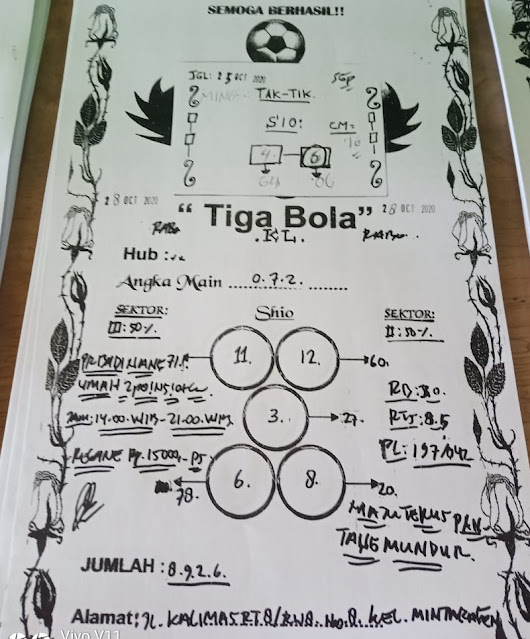 SEMOGA BERHASIL!!
JGL: 25 OCT 2020 SGP
TAK-TIK.
S'10: CM=
6
64 06
28 OCT 2020 28 OCT 2020
“Tiga Bola”
RABU .KL.
Hub :
Angka Main 0.7.2.
SEKTOR: Shio SEKTOR:
III: 50%. II: 50%.
11. 12. 60.
UMAH RD: 80.
3. 27. RTJ: 8.5
JAM: 14.00.WIB-21.00.WIB PL: 197/042
REGANE Rp. 15000,- PJ
6. 8.
78. 20.
MAJU TERUS
TAHE MUNDUR.
JUMLAH : 8.9.2.6.
Alamat: JL. KALIMAS.RT.8/RW8. No.8. KEL.
Vivo V11